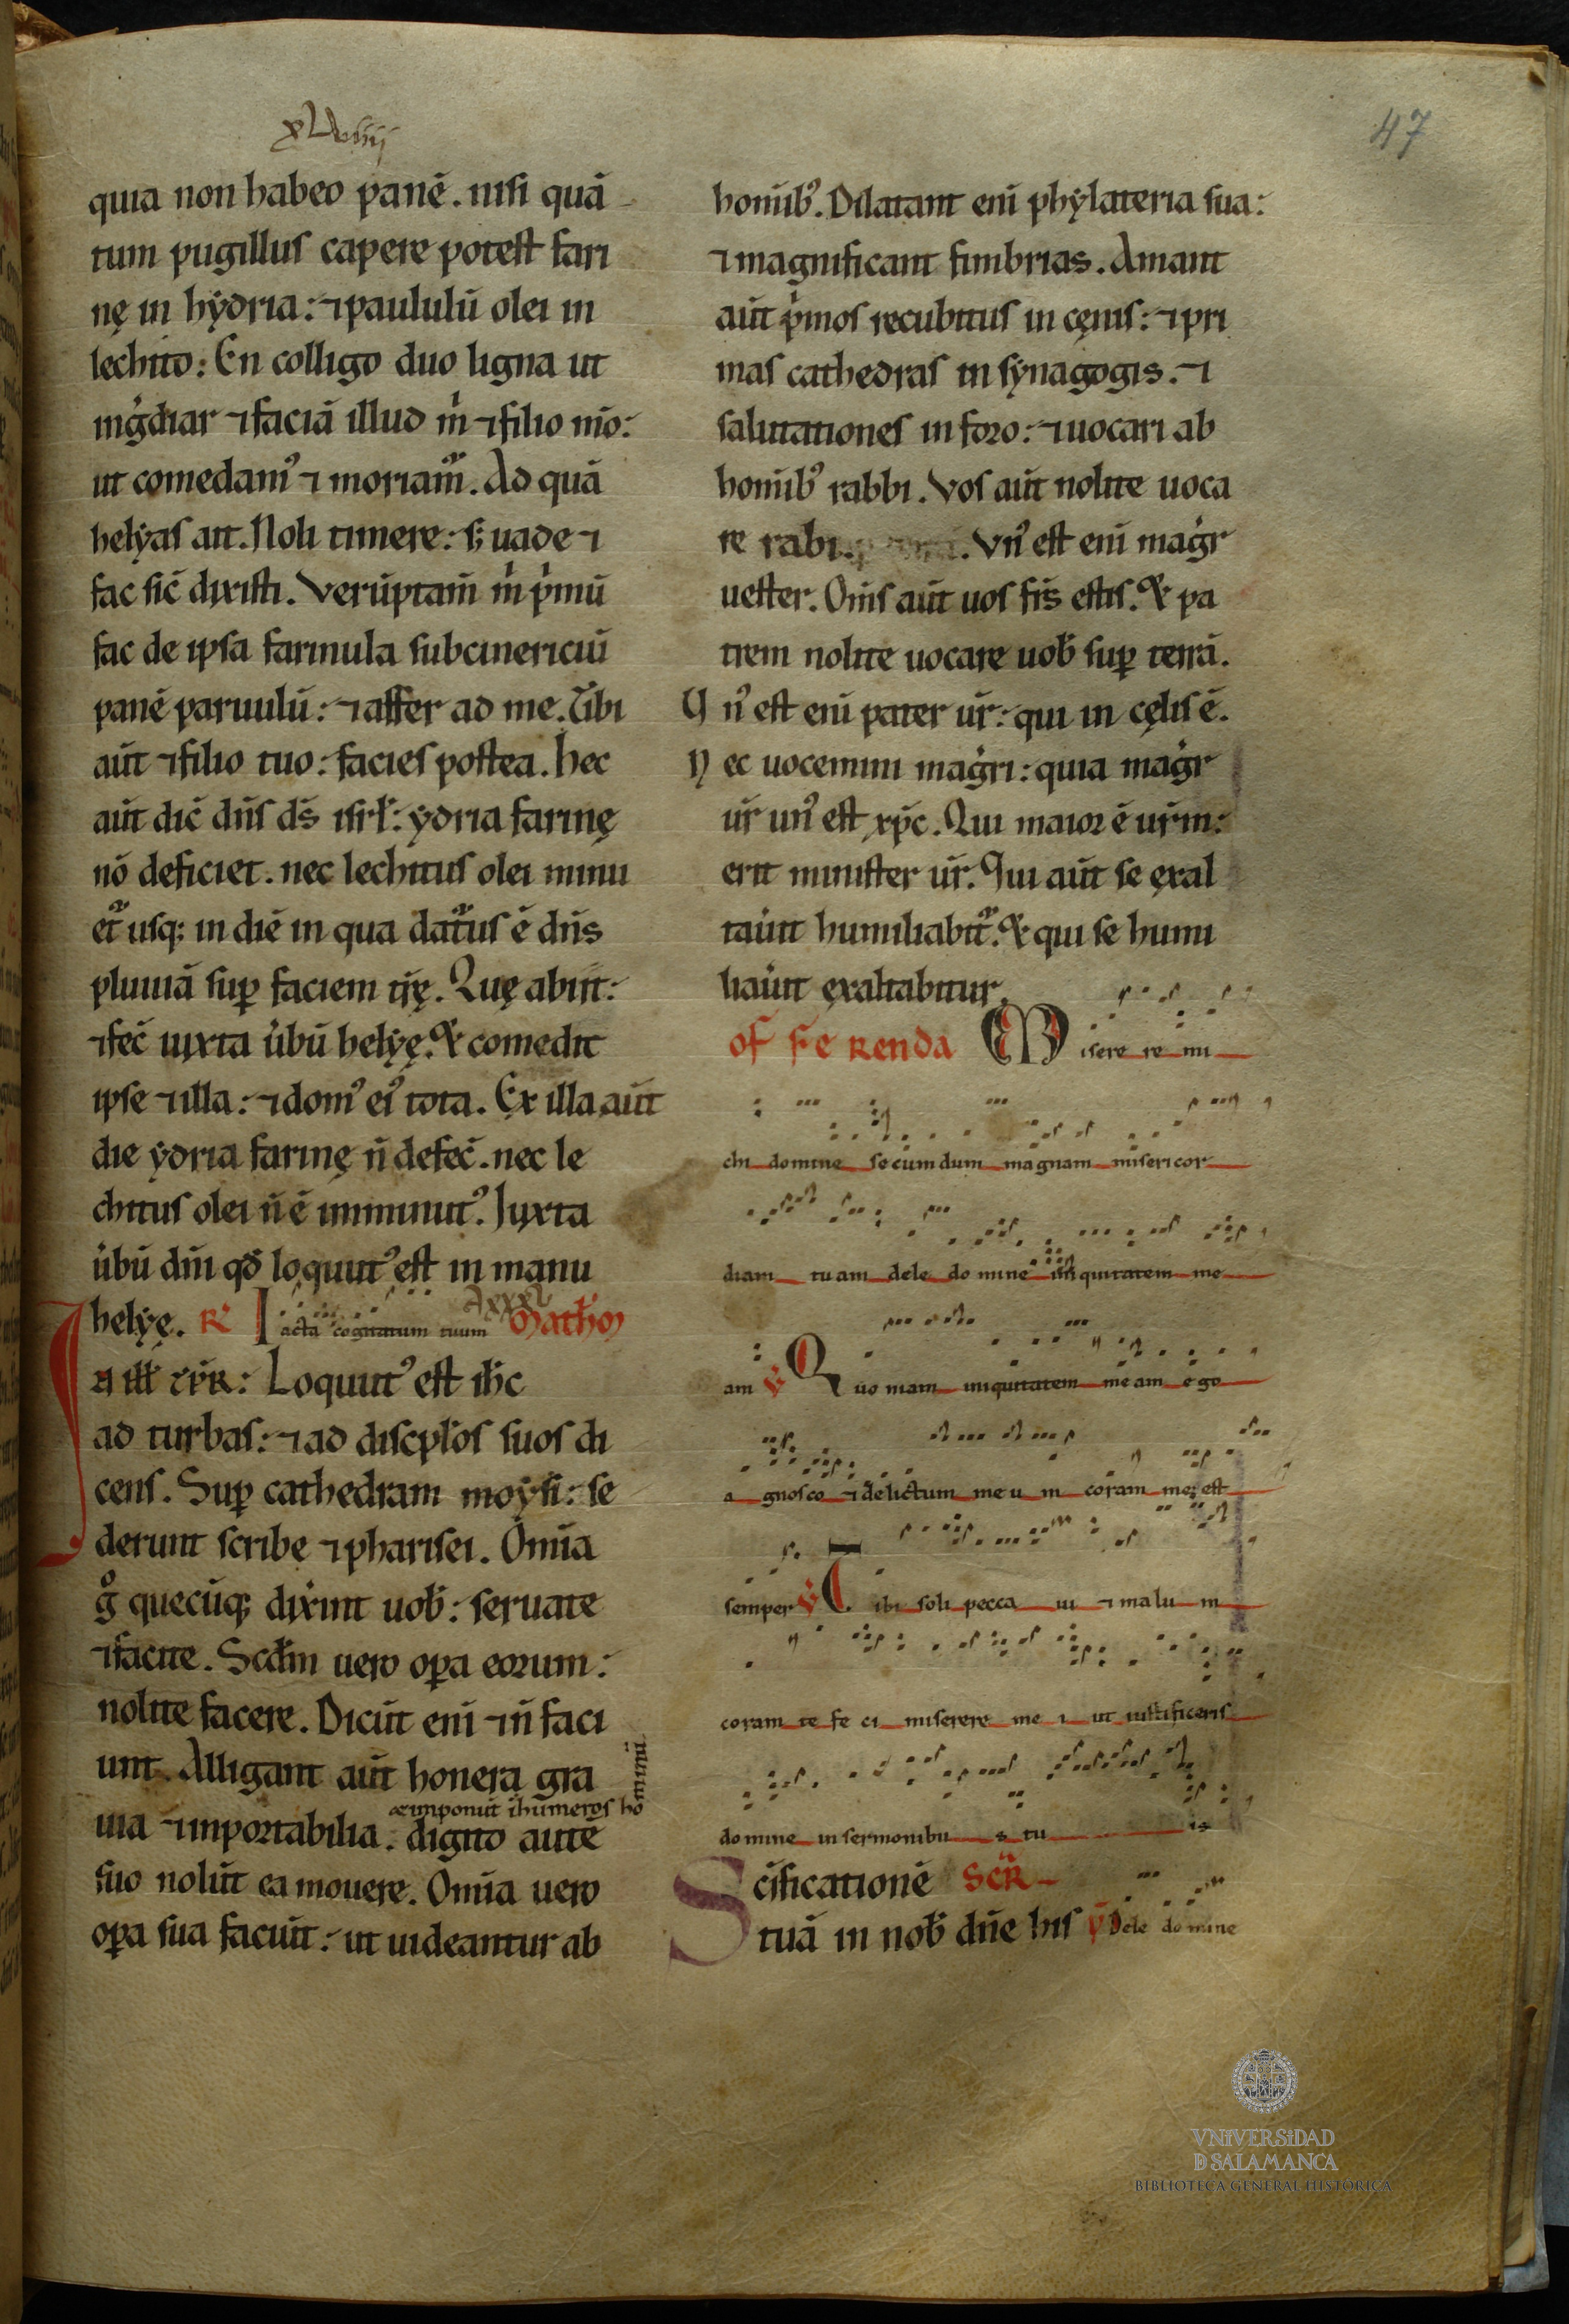 xlviiij
47
quia non habeo panē. nisi quā
tum pugillus capere potest fari
nę in hẏdria: ⁊ paululū olei in
lechito: En colligo duo ligna ut
ingͥdiar ⁊ faciā illud m̍ ⁊ filio mō:
ut comedam᾿ ⁊ moriam᷑. Ad quā
helẏas ait. Noli timere: s; uade ⁊
fac sic̄ dixisti. Verūptam̄ m̍ pͥmū
fac de ipsa farinula subcinericiū
panē paruulū: ⁊ affer ad me. Tibi
aūt ⁊ filio tuo: facies postea. hec
aūt dic̄ dn̄s ds̄ isrł: ẏdria farinę
nō deficiet. nec lechitus olei minu
et᷑ usq; in diē in qua dat᷑us ē dn̄s
pluuiā suꝑ faciem tr̄ę. Quę abiit:
⁊ fec̄ iuxta u̍bū helẏę. & comedit
ipse ⁊ illa: ⁊ dom᾿ ei᾿ tota. Ex illa aūt
die ẏdria farinę n̄ defec̄. nec le
chitus olei n̄ ē imminut᾿. Iuxta
u̍bū dn̄i qd̄ loquut᾿ est in manu
helẏę. R᾿ Iacta cogitatum tuum Matheu
In ill̄ tp̄r: Loquut᾿ est ih̄c
ad turbas: ⁊ ad discpłos suos di
cens. Suꝑ cathedram moẏsi: se
derunt scribe ⁊ pharisei. Om̄ia
gͦ quecūq; dix̍int uob̄: seruate
⁊ facite. Scd̄m uero oꝑa eorum:
nolite facere. Dicūt eni ⁊ n̄ faci
unt. Alligant aūt honera gra
⁊ imponūt ī humeros hominū
uia ⁊ inportabilia. digito autē
suo nolūt ea mouere. Om̄ia uero
oꝑa sua faciūt: ut uideantur ab
homīib᾿. Dilatant eni phẏlateria sua:
⁊ magnificant fimbrias. Amant
aūt pͥmos recubitus in cęnis: ⁊ pri
mas cathedras in sẏnagogis. ⁊
salutationes in foro: ⁊ uocari ab
homīib᾿ rabbi. Vos aūt nolite uoca
re rabi. Vn᾿ est eni mag̍r
uester. Om̄s aūt uos fr̄s estis. & pa
trem nolite uocare uob̄ suꝑ terrā.
Vn᾿ est eni pater ur̄: qui in cęlis ē.
Nec uocemini mag̍ri: quia mag̍r
ur̄ un᾿ est xp̄c. Qui maior ē ur̄m:
erit minister ur̄. Qui aūt se exal
tau̍it humiliabit᷑. & qui se humi
liau̍it exaltabitur.
offerenda Miserere mi
chi domine secumdum magnam misericor
diam tuam dele domine iniquitatem me
am V Quoniam iniquitatem meam ego
agnosco ⁊ delictum meum coram me est
semper V Tibi soli peccaui ⁊ malum
coram te feci miserere mei ut iustificeris
domine in sermonibus tuis
Scīficationē Scr̄
tuā in nob̄ dn̄e his Dele domine
VNiVERSiDAD
D SALAMANCA
BIBLIOTECA GENERAL HISTÓRICA